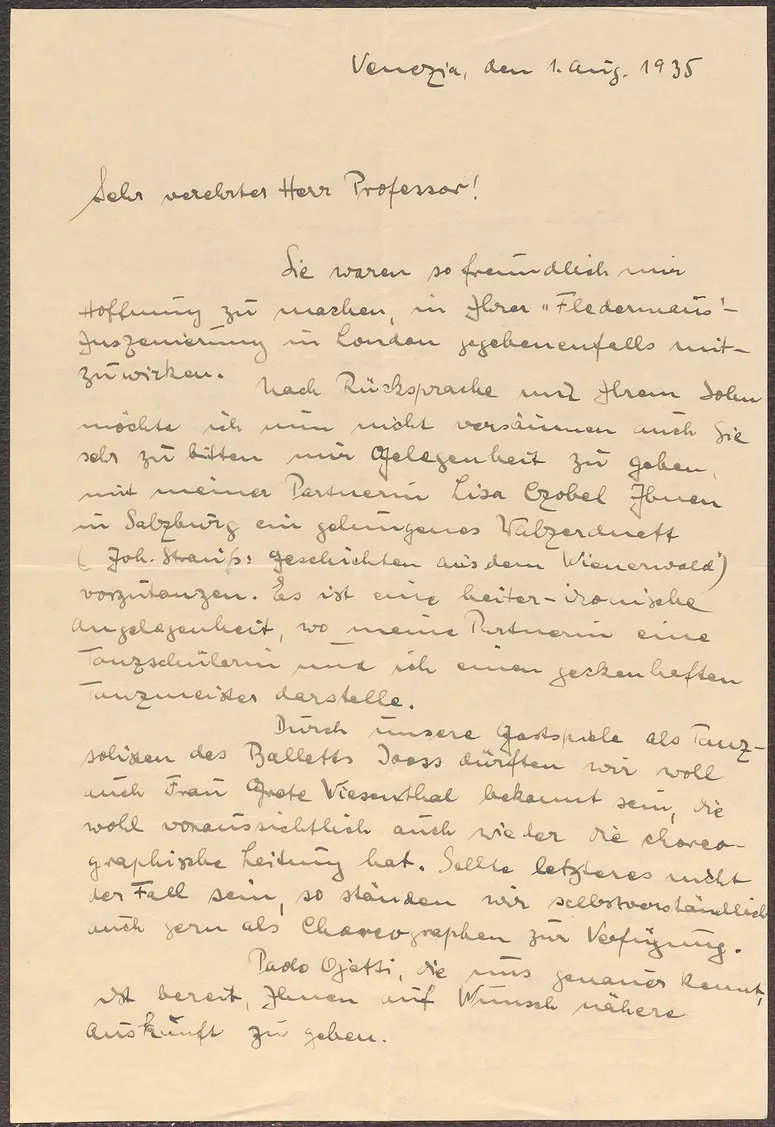 Venezia, den 1. Aug. 1935
Sehr verehrter Herr Professor!
Sie waren so freundlich mir
Hoffnung zu machen, in Ihrer „Fledermaus"-
Inszenierung in London gegebenenfalls mit-
zuwirken.
Nach Rücksprache mit Ihrem Sohn
möchte ich nun nicht versäumen auch Sie
sehr zu bitten mir Gelegenheit zu geben,
mit meiner Partnerin Lisa Czobel Ihnen
in Salzburg ein gelungenes Walzerduett
(Joh. Strauß: Geschichten aus dem Wienerwald")
vorzutanzen. Es ist eine heiter-ironische
Angelegenheit, wo meine Partnerin eine
Tanzschülerin und ich einen geckenhaften
Tanzmeister darstelle.
Durch unsere Gastspiele als Tanz-
solisten des Balletts Jooss dürften wir wohl
auch Frau Grete Wiesenthal bekannt sein, die
wohl voraussichtlich auch wieder die choreo-
graphische Leitung hat. Sollte letzteres nicht
der Fall sein, so ständen wir selbstverständlich
auch gern als Choreographen zur Verfügung.
Ojetti, die uns genauer kennt,
ist bereit, Ihnen auf Wunsch nähere
Auskunft zu geben.